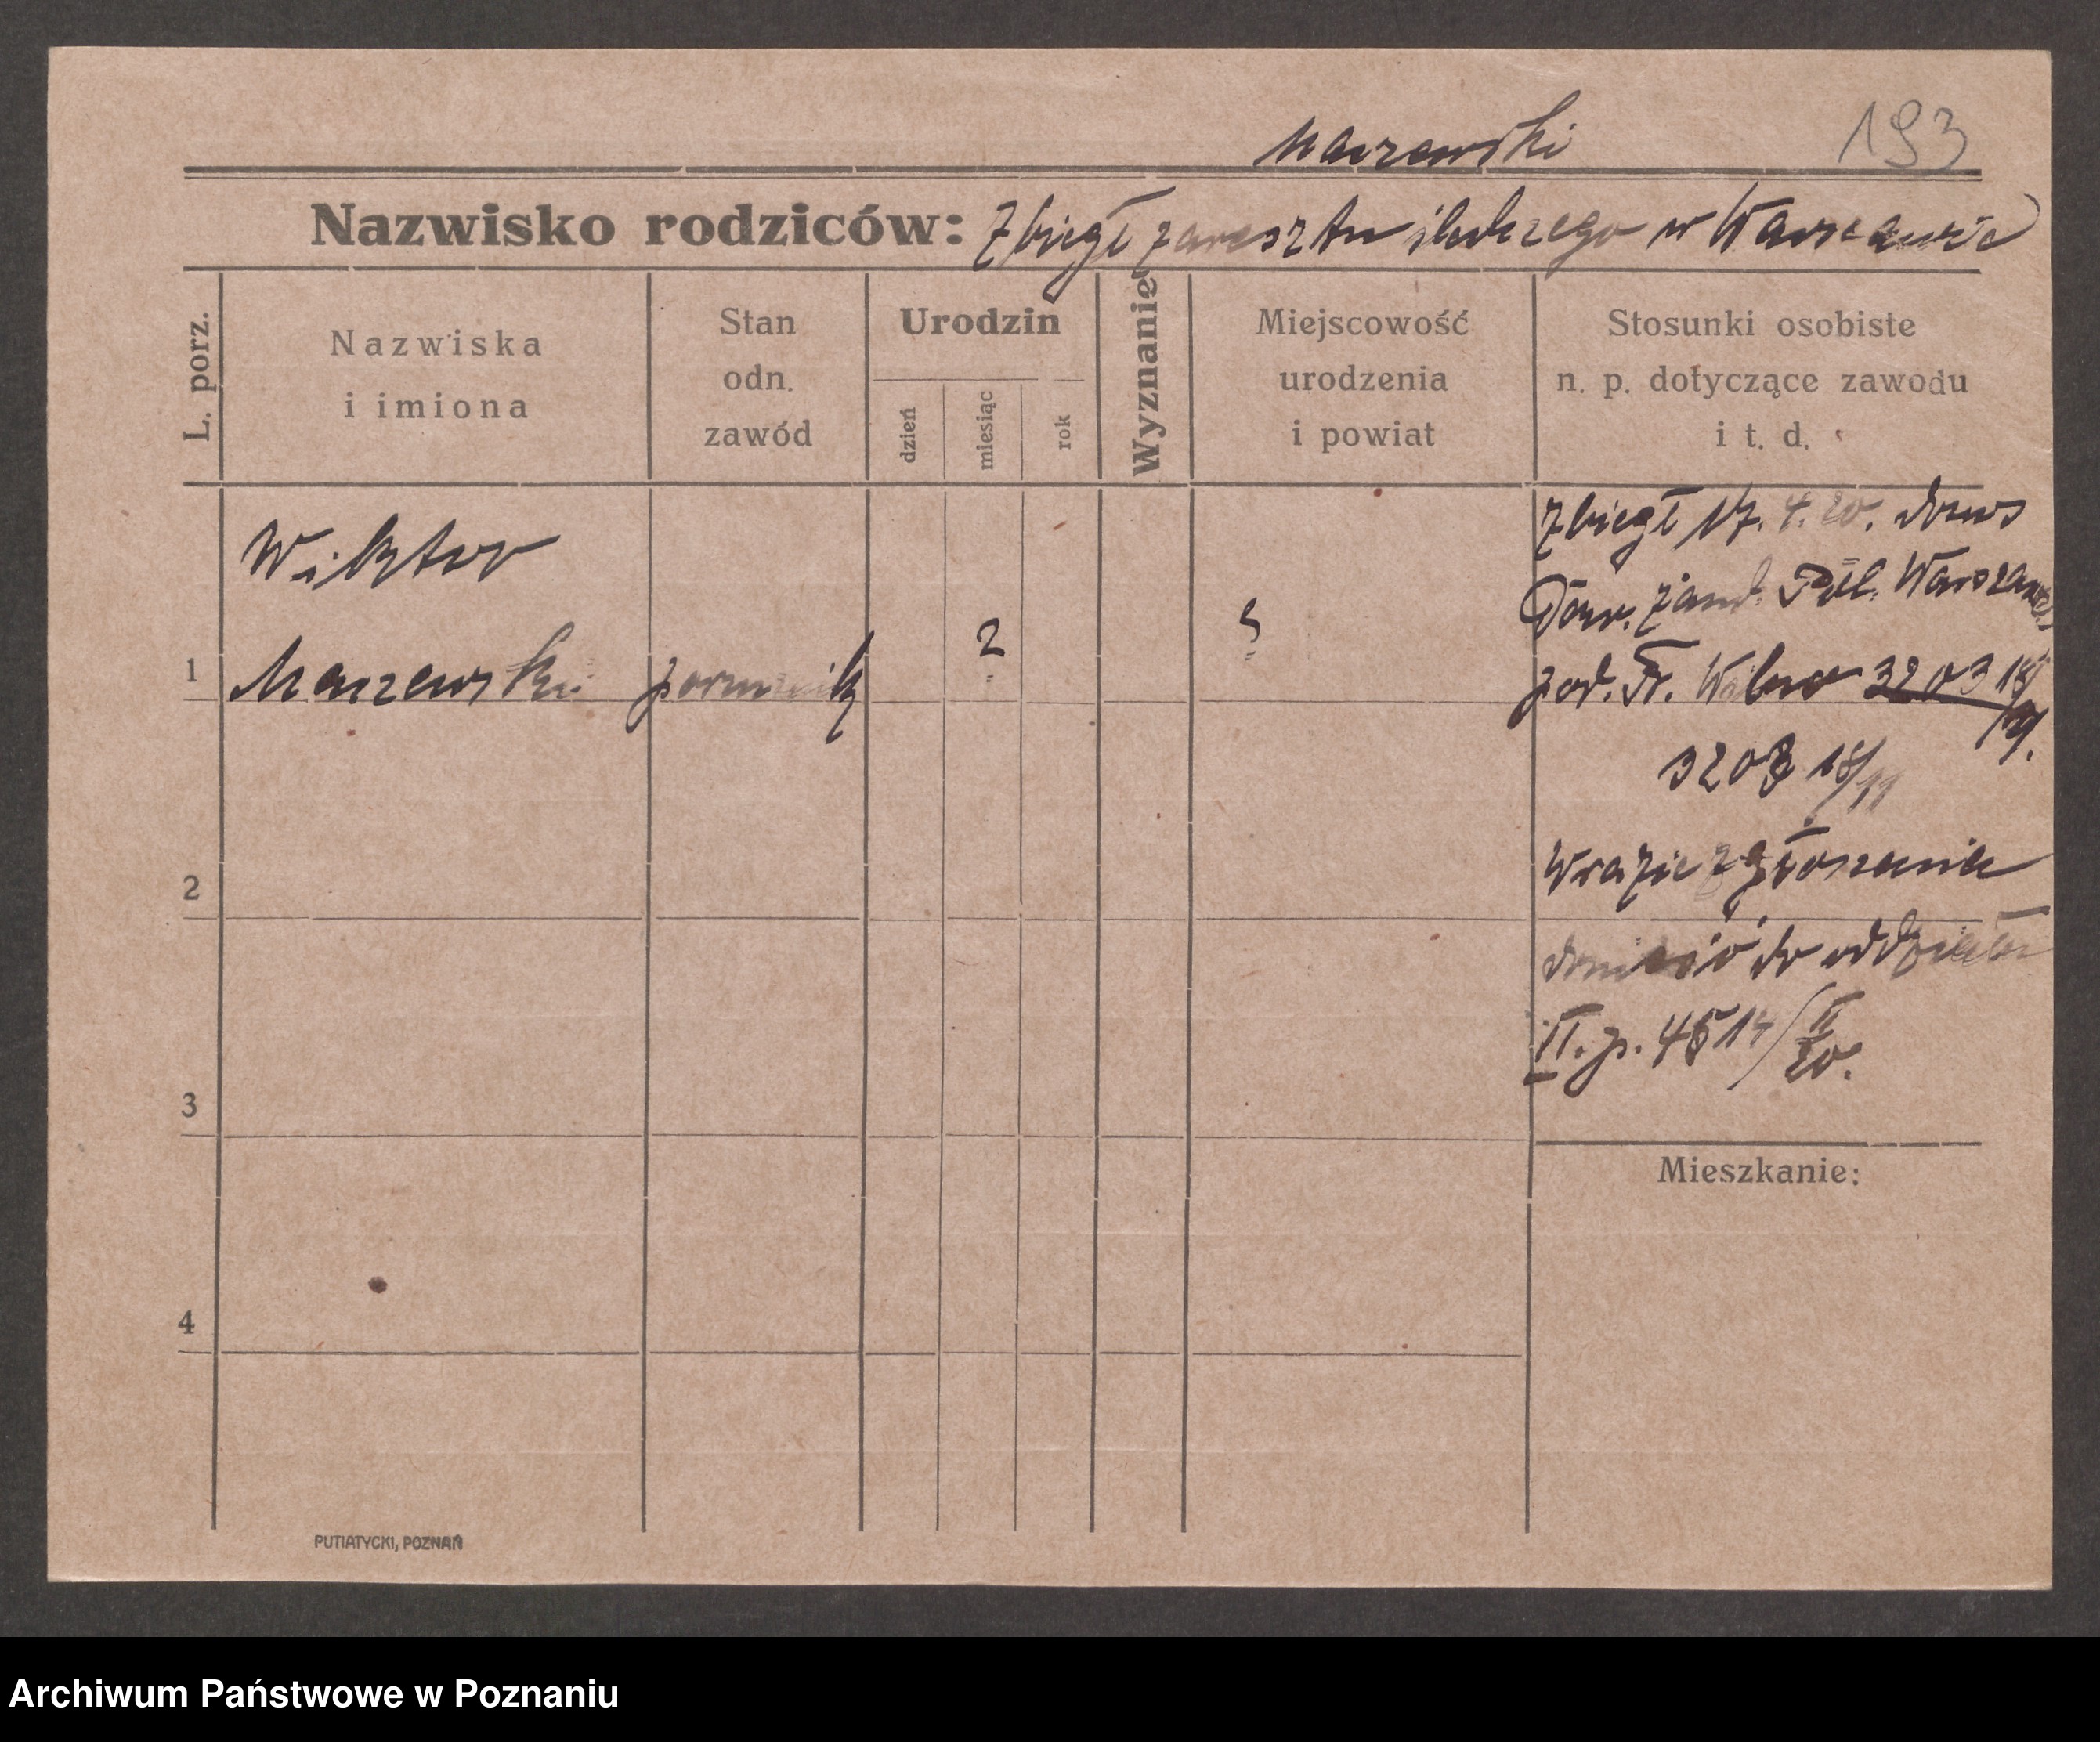 Marzewski 193
Nazwisko rodziców: Zbiegł z aresztu śledczego w Warszawie
L. porz.
Nazwiska i imiona
Stan odn. zawód
Urodzin
dzień
miesiąc
rok
Wyznanie
Miejscowość urodzenia i powiat
Stosunki osobiste n. p. dotyczące zawodu i t. d.
Wiktor
1 Marzewski porucznik ? ?
Zbiegł 17. 4. 20. donos
Dow. żand. Pol. Warszawa
pod. Nr. 3203 18/19.
3203 18/11
W razie zgłoszenia
donieść do oddziału
II. p. 4514/II 20.
2
3
4
Mieszkanie:
PUTIATYCKI, POZNAŃ
Archiwum Państwowe w Poznaniu